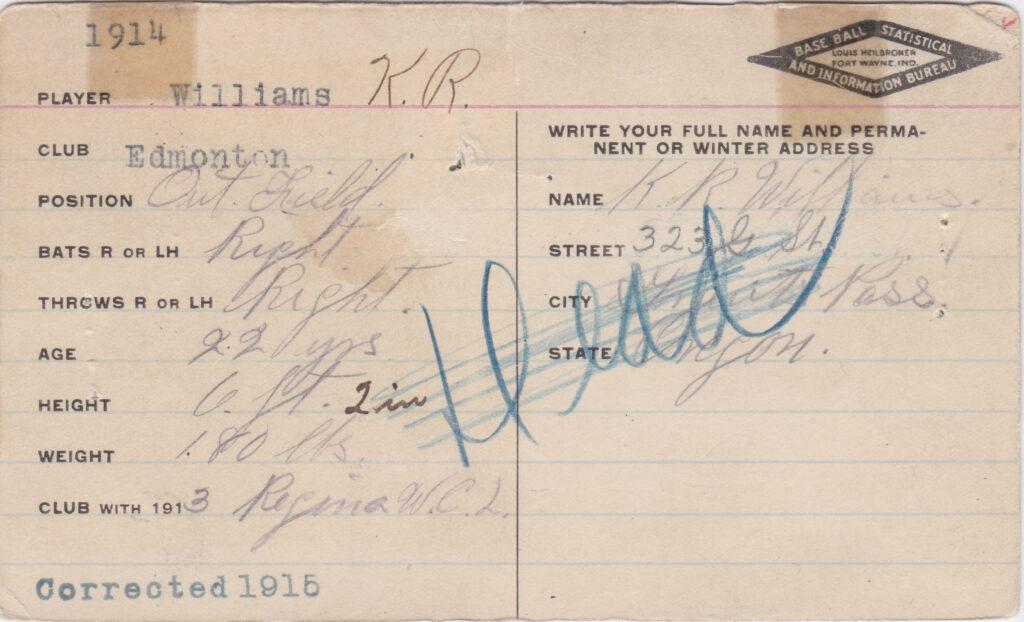 1914
BASE BALL STATISTICAL
LOUIS HEILBRONER
FORT WAYNE, IND.
AND INFORMATION BUREAU
PLAYER Williams K. R.
CLUB Edmonton
POSITION Out Field.
BATS R OR LH Right
THROWS R OR LH Right.
AGE 22 yrs
HEIGHT 6. ft. 2 in
WEIGHT 180 lbs.
CLUB WITH 1913 Regina W.C.L.
Corrected 1915
WRITE YOUR FULL NAME AND PERMA-
NENT OR WINTER ADDRESS
NAME K. R. Williams.
STREET 323 G St.
CITY Grants Pass.
STATE Oregon.
Dead